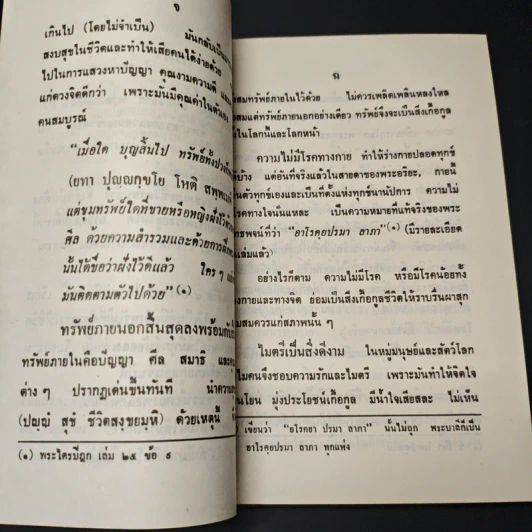 จ
เกินไป (โดยไม่จำเป็น) มันกลับเป็น
สงบสุขในชีวิตและทำให้เสียคนได้ง่ายด้วย
ไปในการแสวงหาปัญญา คุณงามความดี
แก่ดวงจิตดีกว่า เพราะมันมีคุณค่าในตัว
คนสมบูรณ์
"เมื่อใด บุญสิ้นไป ทรัพย์ทั้งปวง
(ยทา ปุญฺญกฺขโย โหติ สพฺพ
แต่ขุมทรัพย์ใดที่ชายหรือหญิงฝังไว้
ศีล ด้วยความสำรวมและด้วยการฝึก
นั้นได้ชื่อว่าฝังไว้ดีแล้ว ใครๆ
มันติดตามตัวไปด้วย"(๑)
ทรัพย์ภายนอกสิ้นสุดลงพร้อมกับ
ทรัพย์ภายในคือปัญญา ศีล สมาธิ และ
ต่างๆ ปรากฏเด่นขึ้นทันที นำความ
(ปญฺญํ สุขํ ชีวิตสงฺขยมหิ) ด้วยเหตุนี้
(๑) พระไตรปิฎก เล่ม ๒๕ ข้อ ๙
ฉ
สมทรัพย์ภายในไว้ด้วย ไม่ควรเพลิดเพลินหลงใหล
สมแต่ทรัพย์ภายนอกอย่างเดียว ทรัพย์จึงจะเป็นสิ่งเกื้อกูล
ในโลกนี้และโลกหน้า
ความไม่มีโรคทางกาย ทำให้ร่างกายปลอดทุกข์
ได้บ้าง แต่อันที่จริงแล้วในสายตาของพระอริยะ, กายนี้
เป็นตัวทุกข์เองและเป็นที่ตั้งแห่งทุกข์นานัปการ ความไม่
โรคทางใจนั่นแหละ เป็นความหมายที่แท้จริงของพระ
พุทธพจน์ที่ว่า "อาโรคฺยปรมา ลาภา"(๑) (มีรายละเอียด
เล่มแล้ว)
อย่างไรก็ตาม ความไม่มีโรค หรือมีโรคน้อยทั้ง
งกายและทางจิต ย่อมเป็นสิ่งเกื้อกูลชีวิตให้ราบรื่นผาสุก
มสมควรแก่สภาพนั้นๆ
ไมตรีเป็นสิ่งดีงาม ในหมู่มนุษย์และสัตว์โลก
ไมคนจึงชอบความรักและไมตรี เพราะมันทำให้จิตใจ
นโยน มุ่งประโยชน์เกื้อกูล มีน้ำใจเสียสละ ไม่เห็น
เขียนว่า "อโรคยา ปรมา ลาภา" นั้นไม่ถูก พระบาลีที่เป็น
อาโรคฺยปรมา ลาภา ทุกแห่ง